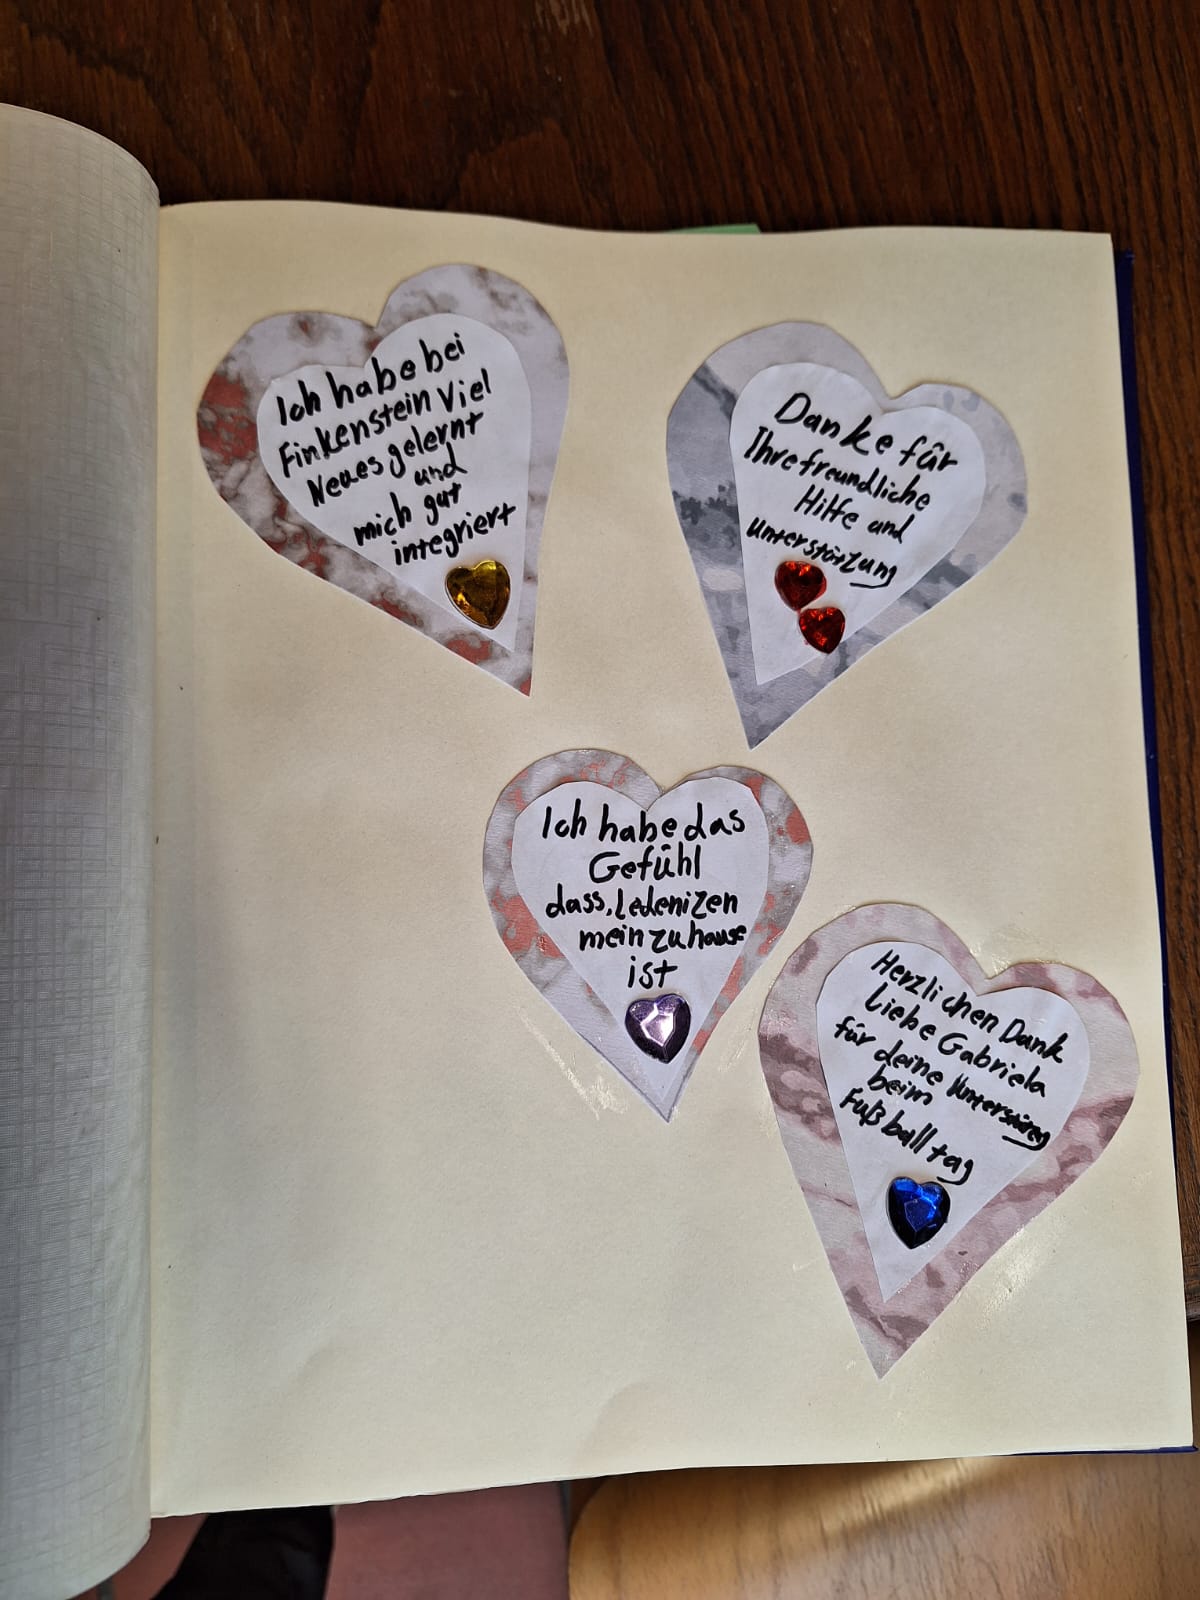 Ich habe bei
Finkenstein Viel
Neues gelernt
und
mich gut
integriert
Danke für
Ihre freundliche
Hilfe und
unterstützung
Ich habe das
Gefühl
dass, Ledenizen
mein zuhause
ist
Herzlichen Dank
Liebe Gabriela
für deine
beim
Fußball tag